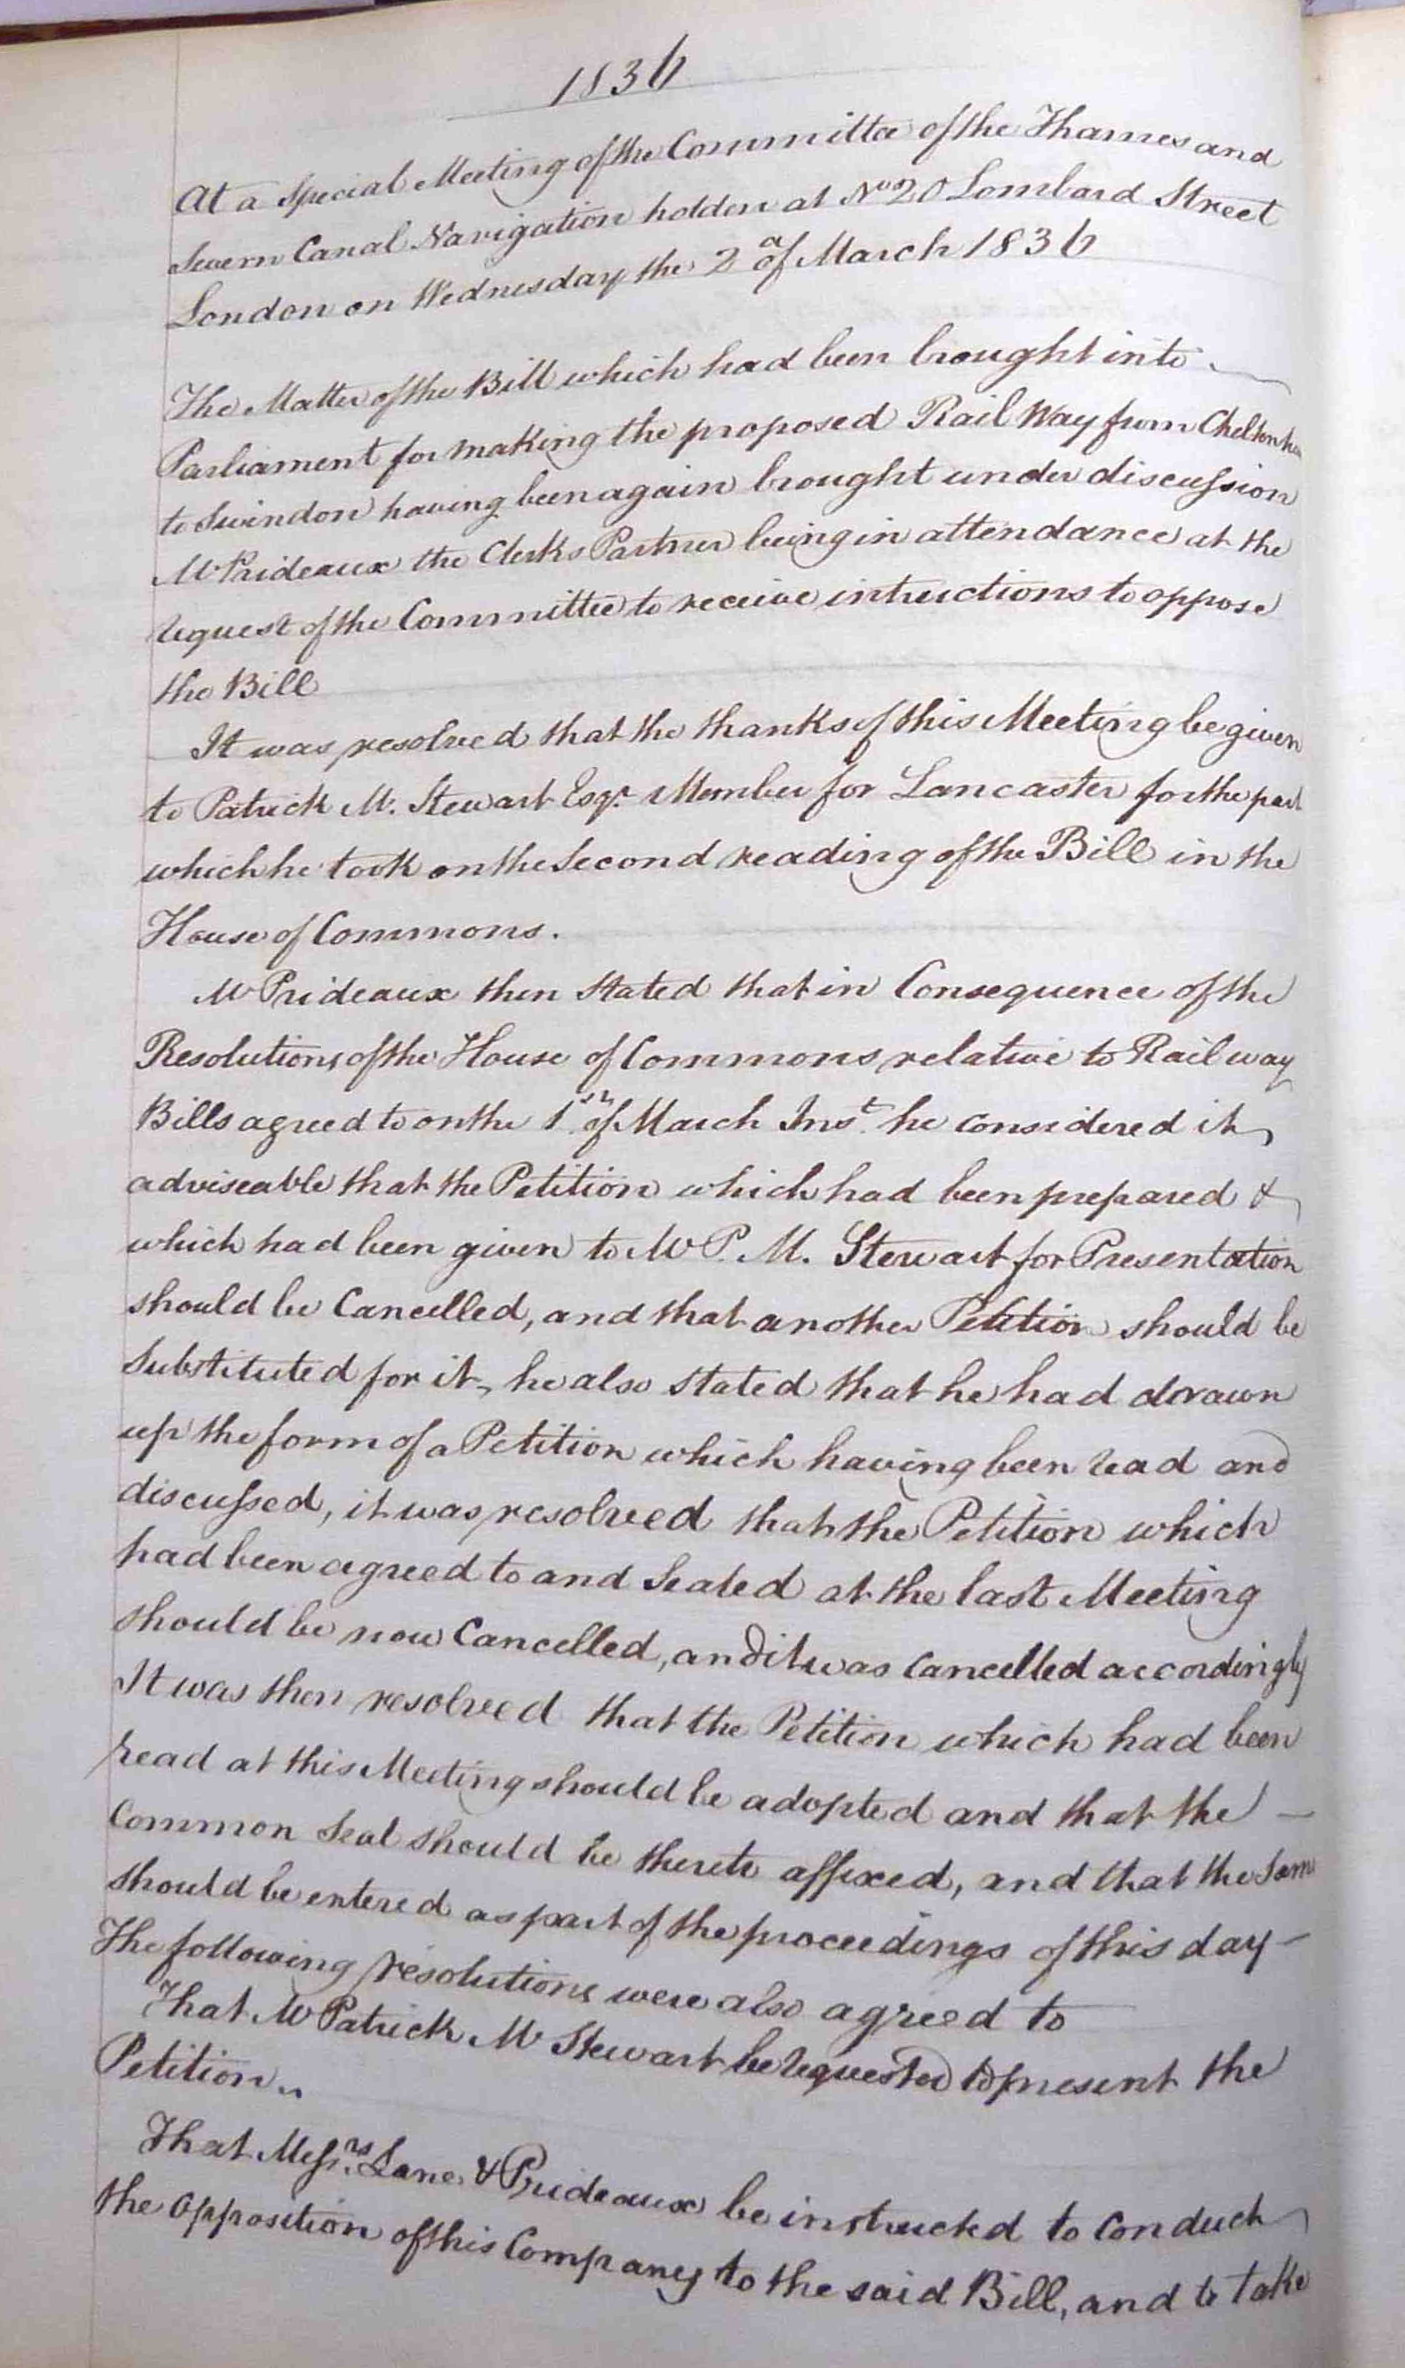 1836
At a Special Meeting of the Committee of the Thames and
Severn Canal Navigation holden at No 20 Lombard Street
London on Wednesday the 2d of March 1836
The Matter of the Bill which had been brought into
Parliament for making the proposed Rail Way from Cheltenham
to Swindon having been again brought under discussion
Mr Prideaux the Clerks Partner being in attendance at the
request of the Committee to receive intructions to oppose
the Bill
It was resolved that the thanks of this Meeting be given
to Patrick M. Stewart Esqr. Member for Lancaster for the part
which he took on the Second reading of the Bill in the
House of Commons.
Mr Prideaux then stated that in Consequence of the
Resolutions of the House of Commons relative to Railway
Bills agreed to on the 1st of March Inst. he considered it
adviseable that the Petition which had been prepared &
which had been given to Mr P. M. Stewart for Presentation
should be Cancelled, and that another Petition should be
Substituted for it, he also stated that he had drawn
up the form of a Petition which having been read and
discussed, it was resolved that the Petition which
had been agreed to and Sealed at the last Meeting
should be now Cancelled, and it was Cancelled accordingly
It was then resolved that the Petition which had been
read at this Meeting should be adopted and that the —
Common Seal should be thereto affixed, and that the Same
should be entered as part of the proceedings of this day —
The following resolutions were also agreed to
That Mr Patrick M Stewart be requested to present the
Petition.
That Messrs. Lane & Prideaux be instructed to conduct
the opposition of this Company to the said Bill, and to take